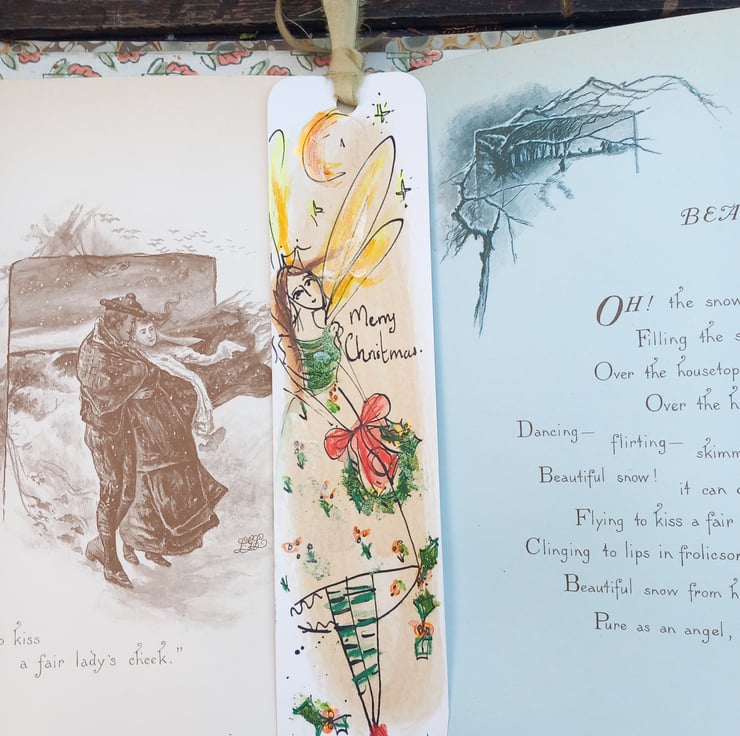 kiss
a fair lady's cheek."
Merry
Christmas.
OH! the
Filling the
Over the
Over the
Dancing— flirting—
Beautiful snow! it can
Flying to kiss a fair
Clinging to lips in
Beautiful snow from
Pure as an angel,